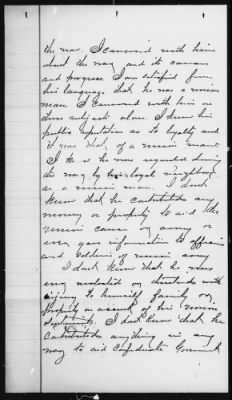 the war. I conversed with him
about the war and its causes
and progress I am satisfied from
his language that he was a union
man I conversed with him on
these subjects alone. I knew his
public reputation as to loyalty and
it was that of a union man.
I know he was regarded during
the war by his loyal neighbors
as a union man. I dont
know that he contributed any
money or property to aid the
union cause or army or
ever gave information to officers
and soldiers of union army
I dont know that he was
ever molested or threatened with
injury to himself family or
property on account of his union
sentiments. I dont know that he
contributed anything in any
way to aid Confederate Government